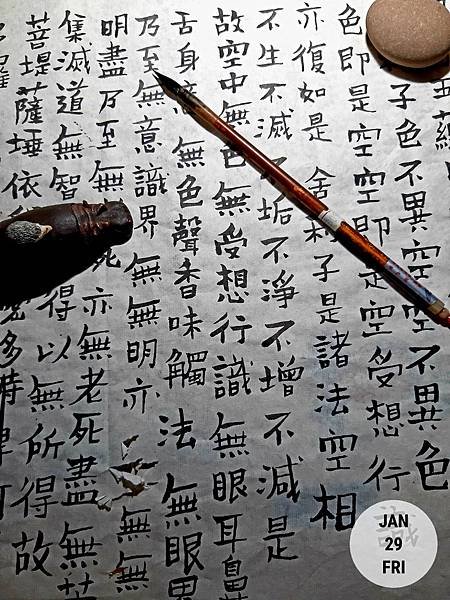 五蘊
子色不異空空不異色
色即是空空即是空受想行識
亦復如是舍利子是諸法空相
不生不滅不垢不淨不增不減是
故空中無色無受想行識無眼耳鼻
舌身意無色聲香味觸法無眼界
乃至無意識界無無明亦無無
明盡乃至無死亦無老死盡無苦
集滅道無智得以無所得故
菩堤薩埵依多
JAN
29
FRI